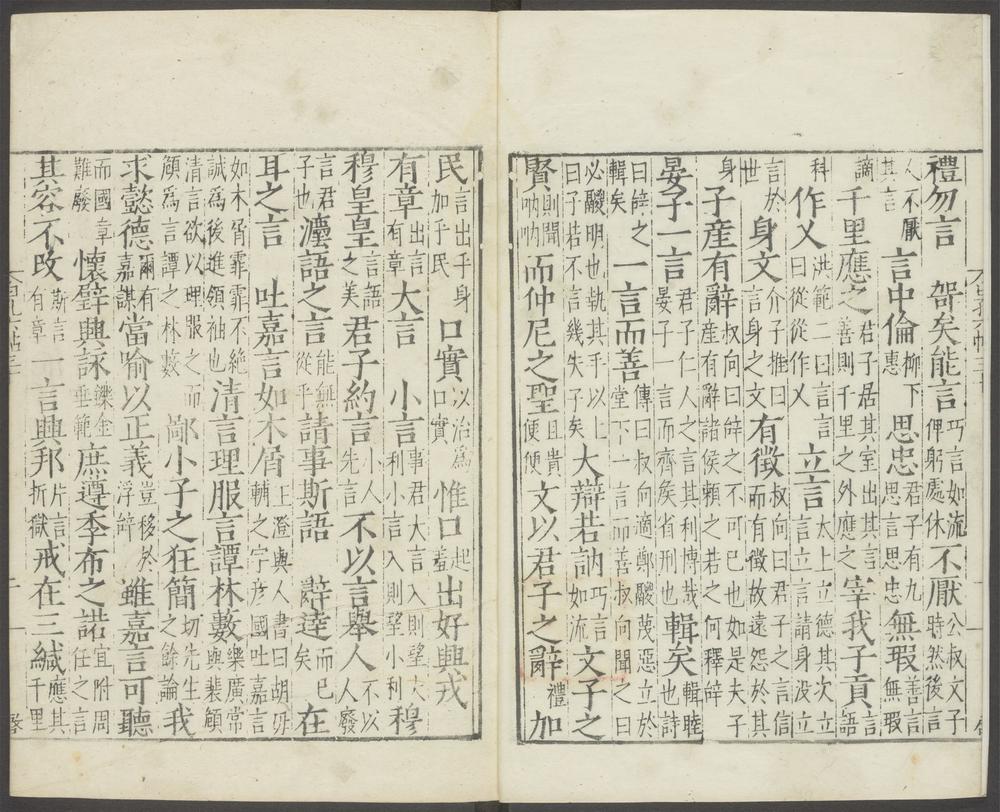 禮勿言 哿矣能言 巧言如流俾躬處休 不厭 公叔文子時然後言
人不厭其言 言中倫 柳下惠 思忠 君子有九思言思忠 無瑕 善言無瑕
謫 千里應之 君子居其室出其言善則千里之外應之 宰我子貢 言語
科 作乂 洪範二曰言曰從從作乂 立言 太上立德其次立言立言請身没立
言於世 身文 介子推曰言身之文 有徵 叔向曰君子之言信而有徵故遠怨於其
身 子產有辭 叔向曰辭之不可已也如是夫子產有辭諸侯賴之若之何釋辭
晏子一言 君子仁人之言其利博哉晏子一言而齊矦省刑也 輯矣 輯睦也詩
曰辭之輯矣 一言而善 傳曰叔向適鄭鬷蔑惡立於堂下一言而善叔向聞之曰
必鬷明也執其手以上曰子若不言幾失子矣 大辯若訥 巧言如流 文子之
賢 且貴則聞吶吶 而仲尼之聖 便便 文以君子之辭 禮 加
民 言出乎身加乎民 口實 以治為口實 惟口 起羞 出好興戎
有章 出言有章 大言 小言 事君大言入則望大利小言入則望小利 穆
穆皇皇 言語之美 君子約言 小人先言 不以言舉人 不以人廢
言君子也 灋語之言 能無從乎 請事斯語 辭達 而已矣 在
耳之言 吐嘉言如木屑 上澄與人書曰胡毋輔之字彥國吐嘉言
如木屑霏霏不絕誠為後進領袖也 清言理服言譚林藪 樂廣常與裴頠
清言欲以理服之而頠為言譚之林藪 鄙小子之狂簡 切先生之餘論 我
求懿德 爾有嘉謀 當喻以正義 豈移於浮辭 雖嘉言可聽
而國章難廢 懷璧興詠 鑠金垂範 庶遵季布之諾 宜附周任之言
其容不改 斯言有章 一言興邦 片言折獄 戒在三緘 應其千里